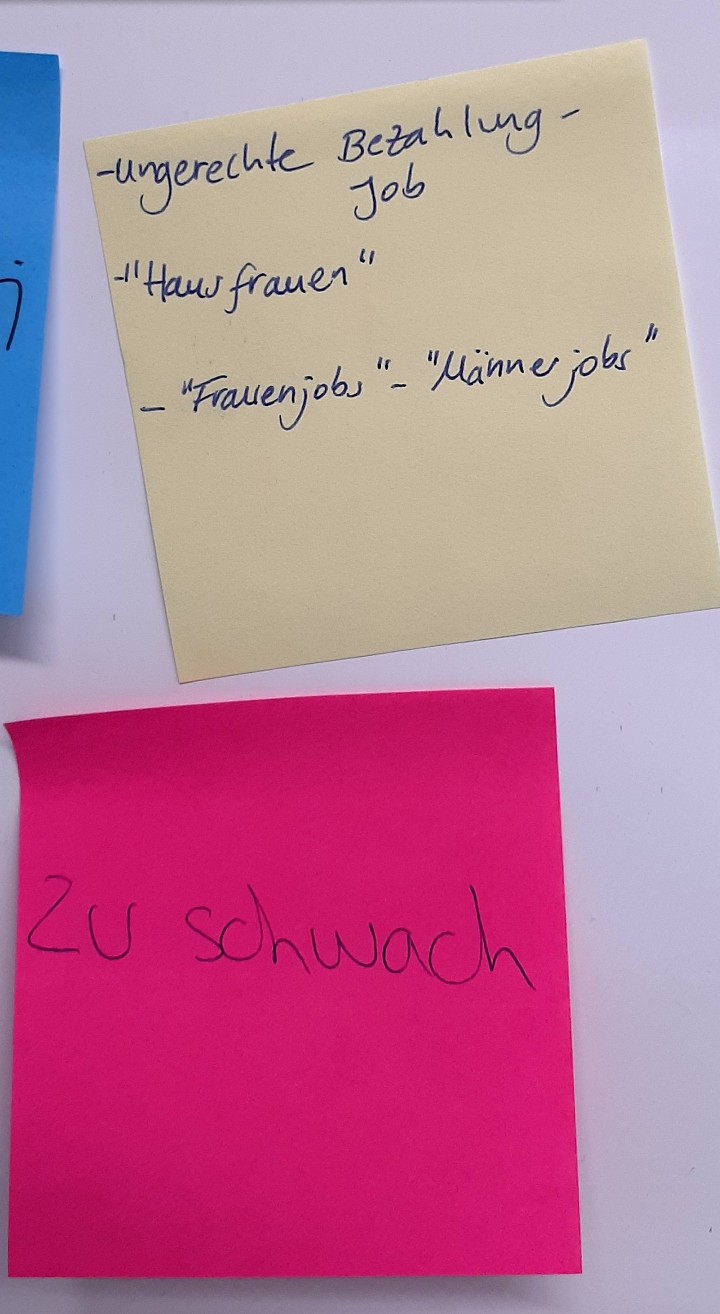 -ungerechte Bezahlung -
Job
-"Hausfrauen"
- "Frauenjobs" - "Männerjobs"
zu schwach